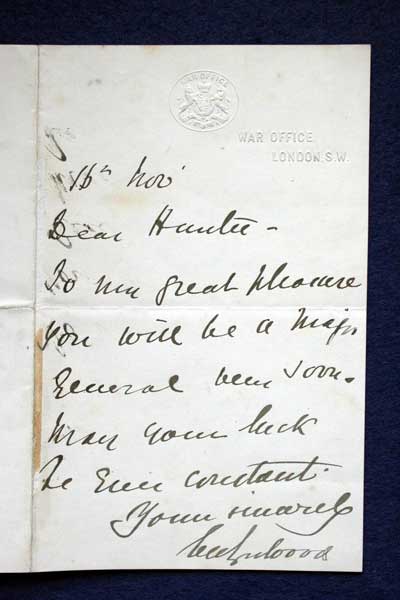 WAR OFFICE
WAR OFFICE
LONDON, S.W.
16th Nov
Dear Hunter -
To my great pleasure
you will be a Major
General very soon.
May your luck
be Ever constant.
Yours sincerely
Evelyn Wood